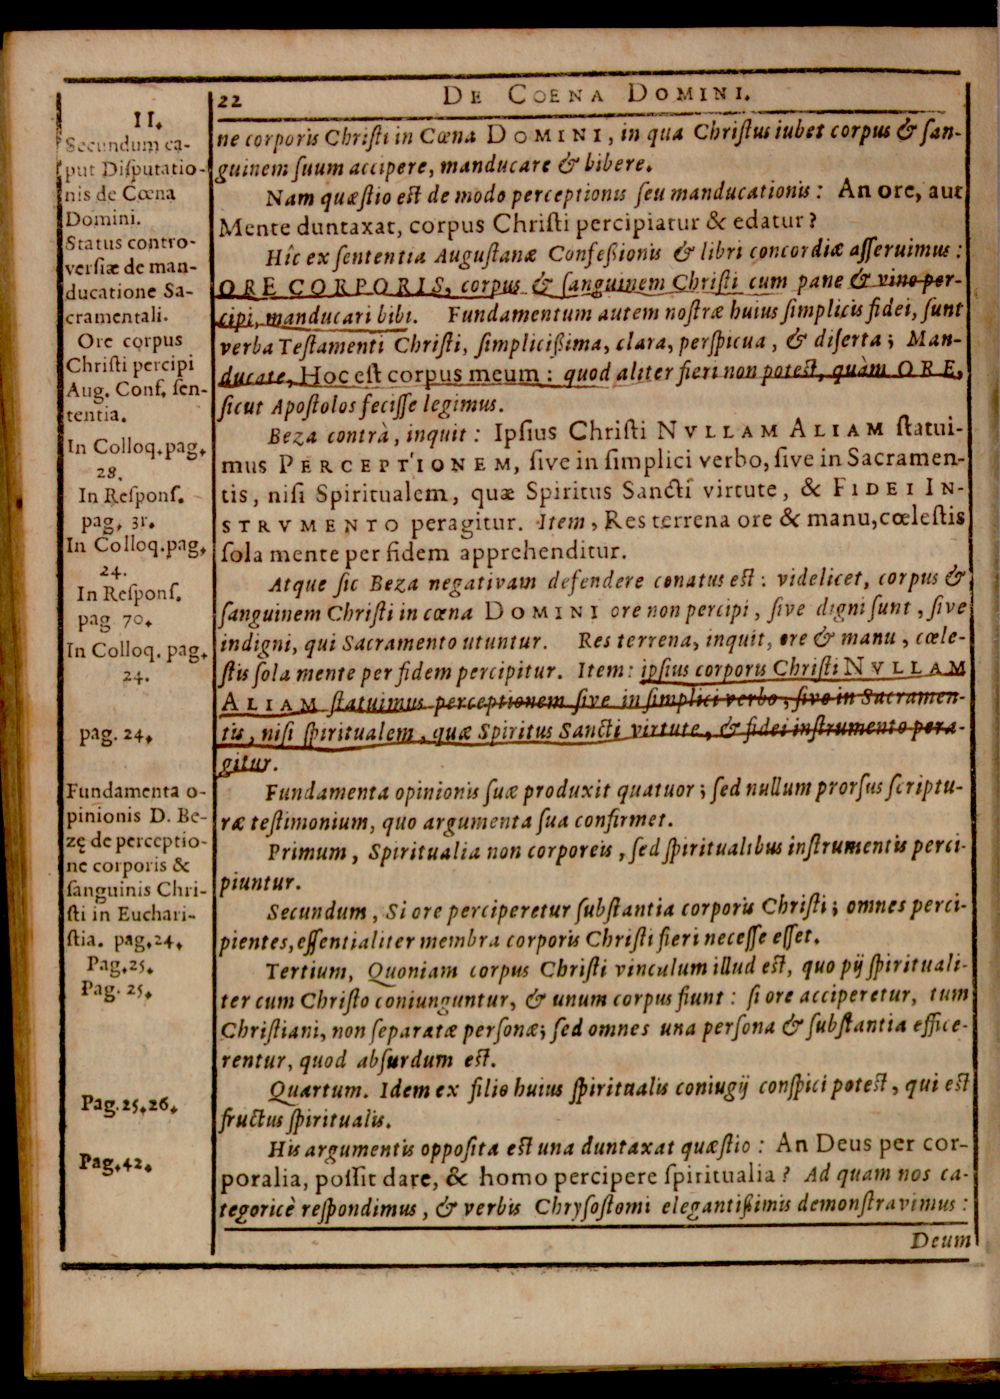 22
DE COENA DOMINI.
II.
Secundum ca-
put Diſputatio-
nis de Cœna
Domini.
Status contro-
verſiæ de man-
ducatione Sa-
cramentali.
Ore corpus
Chriſti percipi
Aug. Conf. ſen-
tentia.
In Colloq. pag.
28.
In Reſponſ.
pag. 31.
In Colloq. pag.
24.
In Reſponſ.
pag 70.
In Colloq. pag.
24.
pag. 24.
Fundamenta o-
pinionis D. Be-
zę de perceptio-
ne corporis &
ſanguinis Chri-
ſti in Euchari-
ſtia. pag. 24.
Pag. 25.
Pag. 25.
Pag. 25. 26.
Pag. 42.
ne corporis Chriſti in Cœna DOMINI, in qua Chriſtus iubet corpus & ſan-
guinem ſuum accipere, manducare & bibere.
Nam quæſtio eſt de modo perceptionis ſeu manducationis: An ore, aut
Mente duntaxat, corpus Chriſti percipiatur & edatur?
Hîc ex ſententia Auguſtanæ Confeßionis & libri concordiæ aſſeruimus:
ORE CORPORIS, corpus & ſanguinem Chriſti cum pane & vino per-
cipi, manducari bibi. Fundamentum autem noſtræ huius ſimplicis fidei, ſunt
verba Teſtamenti Chriſti, ſimplicißima, clara, perſpicua, & diſerta; Man-
ducate, Hoc eſt corpus meum: quod aliter fieri non poteſt, quàm ORE,
ſicut Apoſtolos feciſſe legimus.
Beza contrà, inquit: Ipſius Chriſti NVLLAM ALIAM ſtatui-
mus PERCEPTIONEM, ſive in ſimplici verbo, ſive in Sacramen-
tis, niſi Spiritualem, quæ Spiritus Sancti virtute, & FIDEI IN-
STRVMENTO peragitur. Item, Res terrena ore & manu, cœleſtis
ſola mente per fidem apprehenditur.
Atque ſic Beza negativam defendere conatus eſt: videlicet, corpus &
ſanguinem Chriſti in cœna DOMINI ore non percipi, ſive digni ſunt, ſive
indigni, qui Sacramento utuntur. Res terrena, inquit, ore & manu, cœle-
ſtis ſola mente per fidem percipitur. Item: ipſius corporis Chriſti NVLLAM
ALIAM ſtatuimus perceptionem ſive in ſimplici verbo, ſive in Sacramen-
tis, niſi ſpiritualem, quæ Spiritus Sancti virtute, & fidei inſtrumento pera-
gitur.
Fundamenta opinionis ſuæ produxit quatuor; ſed nullum prorſus ſcriptu-
ræ teſtimonium, quo argumenta ſua confirmet.
Primum, Spiritualia non corporeis, ſed ſpiritualibus inſtrumentis perci-
piuntur.
Secundum, Si ore perciperetur ſubſtantia corporis Chriſti; omnes perci-
pientes, eſſentialiter membra corporis Chriſti fieri neceſſe eſſet.
Tertium, Quoniam corpus Chriſti vinculum illud eſt, quo pij ſpirituali-
ter cum Chriſto coniunguntur, & unum corpus fiunt: ſi ore acciperetur, tum
Chriſtiani, non ſeparatæ perſonæ; ſed omnes una perſona & ſubſtantia effice-
rentur, quod abſurdum eſt.
Quartum. Idem ex filio huius ſpiritualis coniugij conſpici poteſt, qui eſt
fructus ſpiritualis.
His argumentis oppoſita eſt una duntaxat quæſtio: An Deus per cor-
poralia, poſſit dare, & homo percipere ſpiritualia? Ad quam nos ca-
tegoricè reſpondimus, & verbis Chryſoſtomi elegantißimis demonſtravimus:
Deum